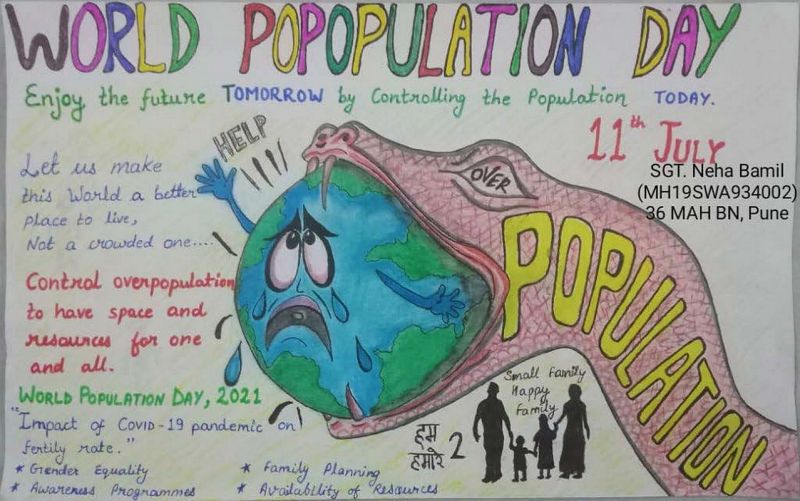 WORLD POPOPULATION DAY
Enjoy the future TOMORROW by Controlling the Population TODAY.
11th JULY
SGT. Neha Bamil
(MH19SWA934002)
36 MAH BN, Pune
HELP
Let us make
this World a better
place to live,
Not a crowded one....
Control overpopulation
to have space and
resources for one
and all.
OVER
POPULATION
WORLD POPULATION DAY, 2021
"Impact of COVID-19 pandemic on
fertily rate."
* Gender Equality
* Awareness Programmes
* Family Planning
* Availability of Resources
हम 2
हमारे
Small Family
Happy
Family